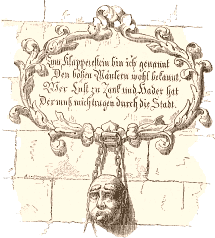 Zum Klapperstein bin ich genannt
Den bösen Mäulern wohl bekannt,
Wer Lust zu Zank und Hader hat
Der muß mich tragen durch die Stadt.